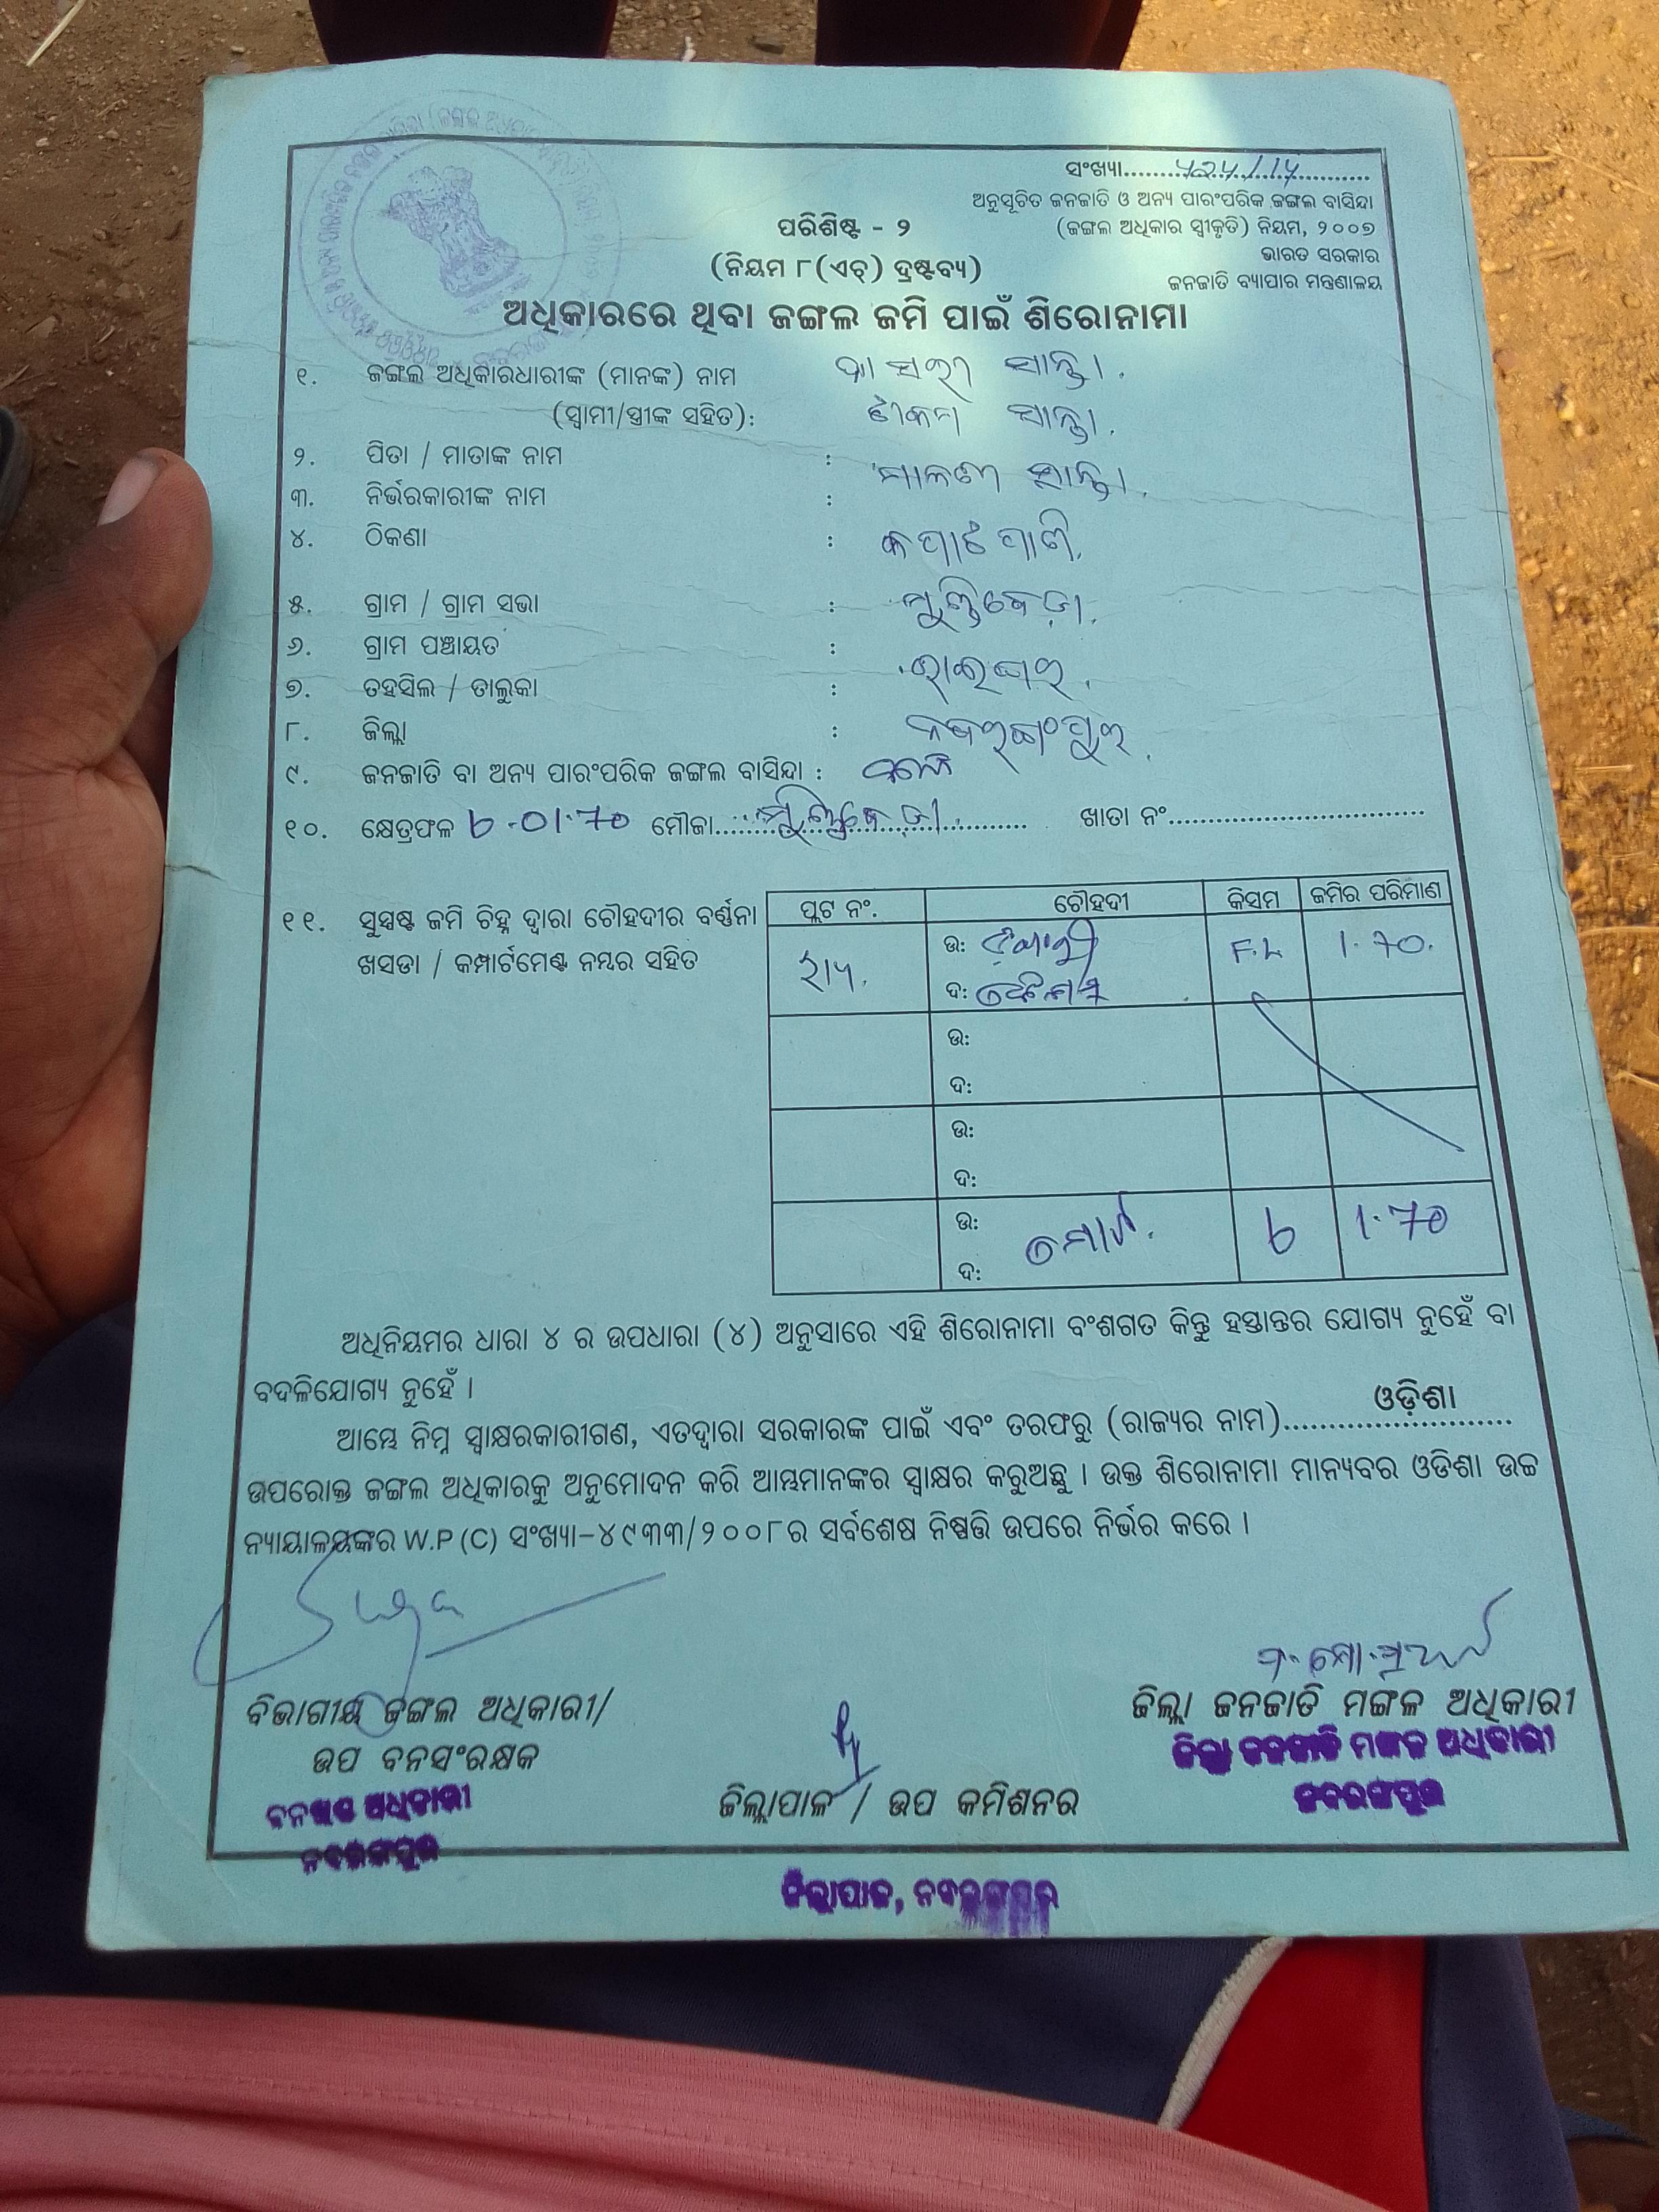 ସଂଖ୍ୟା..................
ଅନୁସୂଚିତ ଜନଜାତି ଓ ଅନ୍ୟ ପାରଂପରିକ ଜଙ୍ଗଲ ବାସିନ୍ଦା
(ଜଙ୍ଗଲ ଅଧିକାର ସ୍ୱୀକୃତି) ନିୟମ, ୨୦୦୭
ଭାରତ ସରକାର
ଜନଜାତି ବ୍ୟାପାର ମନ୍ତ୍ରଣାଳୟ
ପରିଶିଷ୍ଟ - ୨
(ନିୟମ ୮(ଏଚ୍) ଦ୍ରଷ୍ଟବ୍ୟ)
ଅଧିକାରରେ ଥିବା ଜଙ୍ଗଲ ଜମି ପାଇଁ ଶିରୋନାମା
୧. ଜଙ୍ଗଲ ଅଧିକାରଧାରୀଙ୍କ (ମାନଙ୍କ) ନାମ ସାନ୍ତା.
(ସ୍ୱାମୀ/ସ୍ତ୍ରୀଙ୍କ ସହିତ): ସାନ୍ତା.
୨. ପିତା / ମାତାଙ୍କ ନାମ : ସାନ୍ତା.
୩. ନିର୍ଭରକାରୀଙ୍କ ନାମ :
୪. ଠିକଣା :
୫. ଗ୍ରାମ / ଗ୍ରାମ ସଭା :
୬. ଗ୍ରାମ ପଞ୍ଚାୟତ :
୭. ତହସିଲ / ତାଲୁକା : ରାଇଘର.
୮. ଜିଲ୍ଲା : ନବରଙ୍ଗପୁର.
୯. ଜନଜାତି ବା ଅନ୍ୟ ପାରଂପରିକ ଜଙ୍ଗଲ ବାସିନ୍ଦା :
୧୦. କ୍ଷେତ୍ରଫଳ 01.70 ମୌଜା.................. ଖାତା ନଂ..................
୧୧. ସୁସ୍ପଷ୍ଟ ଜମି ଚିହ୍ନ ଦ୍ୱାରା ଚୌହଦୀର ବର୍ଣ୍ଣନା
ଖସଡା / କମ୍ପାର୍ଟମେଣ୍ଟ ନମ୍ବର ସହିତ
ପ୍ଲଟ ନଂ. ଚୌହଦୀ କିସମ ଜମିର ପରିମାଣ
ଉ: F.L 1.70.
ଦ:
ଉ:
ଦ:
ଉ:
ଦ:
ଉ: ମୋଟ. 1.70
ଦ:
ଅଧିନିୟମର ଧାରା ୪ ର ଉପଧାରା (୪) ଅନୁସାରେ ଏହି ଶିରୋନାମା ବଂଶଗତ କିନ୍ତୁ ହସ୍ତାନ୍ତର ଯୋଗ୍ୟ ନୁହେଁ ବା
ବଦଳିଯୋଗ୍ୟ ନୁହେଁ ।
ଆମ୍ଭେ ନିମ୍ନ ସ୍ୱାକ୍ଷରକାରୀଗଣ, ଏତଦ୍ୱାରା ସରକାରଙ୍କ ପାଇଁ ଏବଂ ତରଫରୁ (ରାଜ୍ୟର ନାମ)......ଓଡ଼ିଶା......
ଉପରୋକ୍ତ ଜଙ୍ଗଲ ଅଧିକାରକୁ ଅନୁମୋଦନ କରି ଆମ୍ଭମାନଙ୍କର ସ୍ୱାକ୍ଷର କରୁଅଛୁ । ଉକ୍ତ ଶିରୋନାମା ମାନ୍ୟବର ଓଡିଶା ଉଚ୍ଚ
ନ୍ୟାୟାଳୟଙ୍କର W.P (C) ସଂଖ୍ୟା-୪୯୩୩/୨୦୦୮ର ସର୍ବଶେଷ ନିଷ୍ପତ୍ତି ଉପରେ ନିର୍ଭର କରେ ।
ବିଭାଗୀୟ ଜଙ୍ଗଲ ଅଧିକାରୀ/
ଉପ ବନସଂରକ୍ଷକ
ବନଖଣ୍ଡ ଅଧିକାରୀ
ନବରଙ୍ଗପୁର
ଜିଲ୍ଲାପାଳ / ଉପ କମିଶନର
ଜିଲ୍ଲାପାଳ, ନବରଙ୍ଗପୁର
ଜିଲ୍ଲା ଜନଜାତି ମଙ୍ଗଳ ଅଧିକାରୀ
ଜିଲ୍ଲା ଜନଜାତି ମଙ୍ଗଳ ଅଧିକାରୀ
ନବରଙ୍ଗପୁର